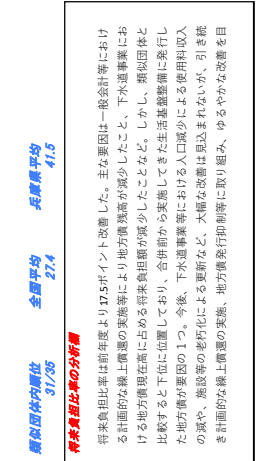 類似団体内順位 全国平均 兵庫県平均
31/35 27.4 41.5
将来負担比率の分析欄
将来負担比率は前年度より17.5ポイント改善した。主な要因は一般会計等におけ
る計画的な繰上償還の実施等により地方債残高が減少したこと、下水道事業にお
ける地方債現在高に占める将来負担額が減少したことなど。しかし、類似団体と
比較すると下位に位置しており、合併前から実施してきた生活基盤整備に発行し
た地方債が要因の1つ。今後、下水道事業等における人口減少による使用料収入
の減や、施設等の老朽化による更新など、大幅な改善は見込まれないが、引き続
き計画的な繰上償還の実施、地方債発行抑制等に取り組み、ゆるやかな改善を目